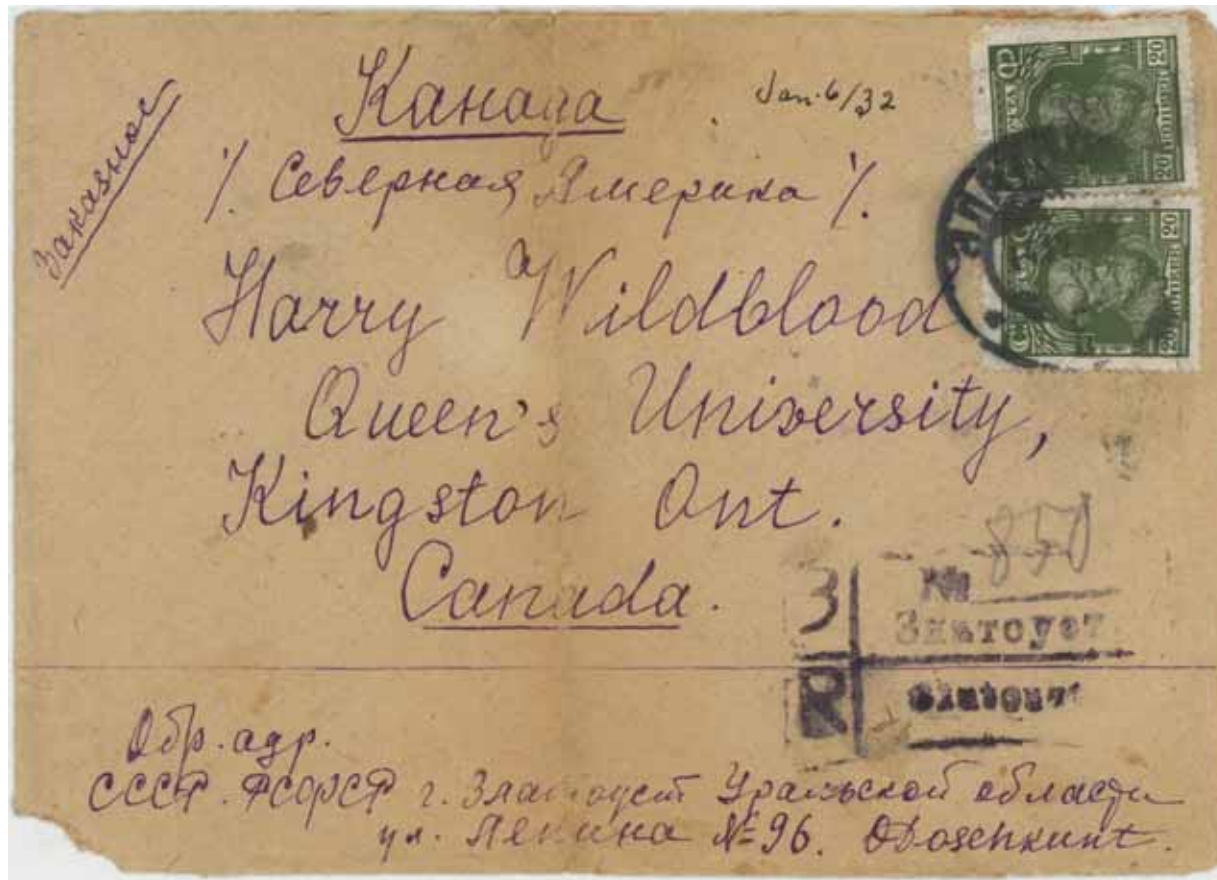 Заказное
Канада
Jan. 6/32
/. Северная Америка /.
Harry Wildblood
Queen's University,
Kingston Ont.
Canada.
20 20
20 20
З № 850
Златоуст
R
Обр. адр.
СССР. РСФСР г. Златоуст Уральской области
ул. Ленина № 96.